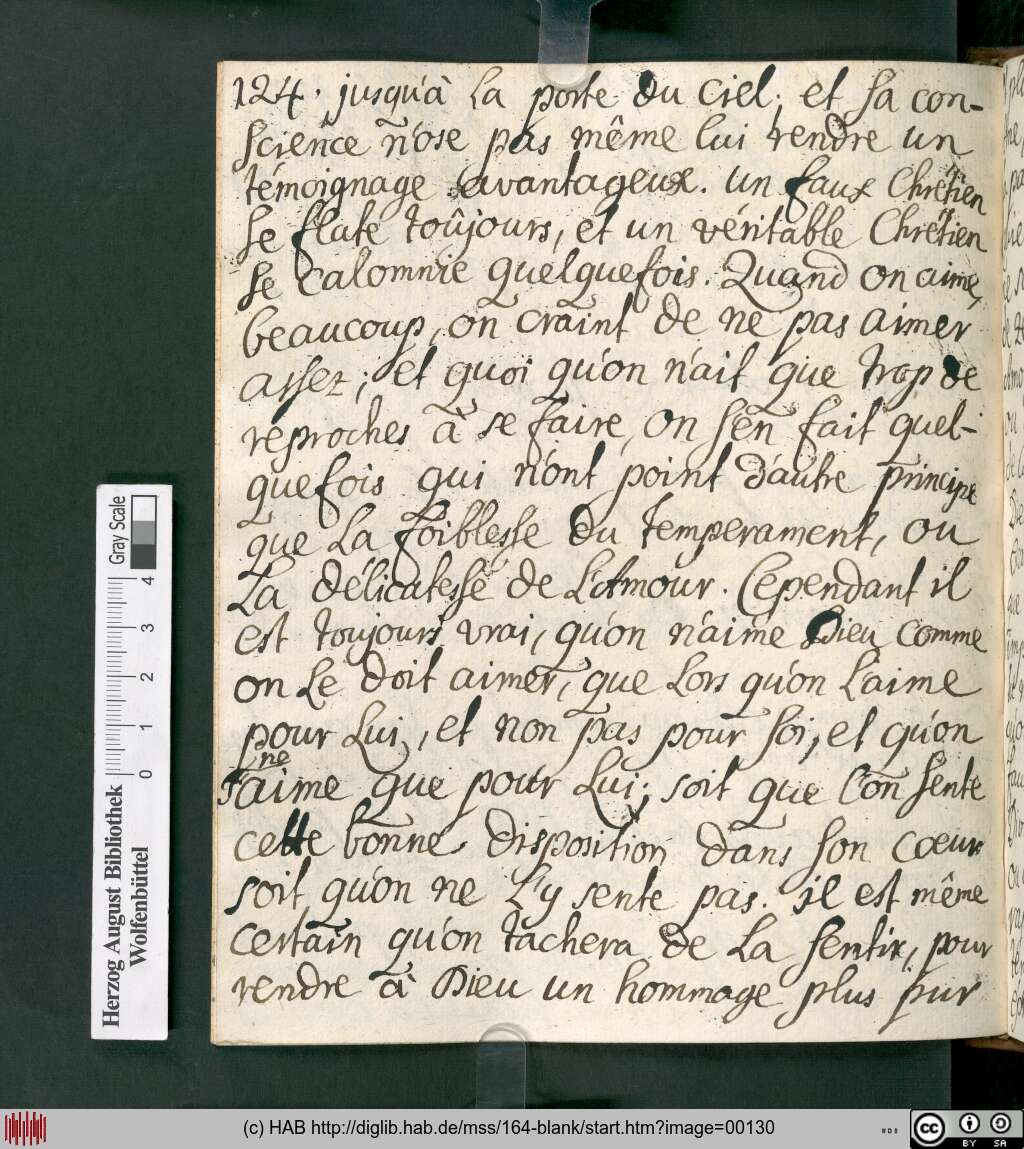 124. jusqu'à La porte du Ciel; et sa con-
science n'ose pas même lui rendre un
témoignage avantageux. Un faux Chrétien
se flate toûjours, et un véritable Chrétien
se calomnie quelquefois. Quand on aime
beaucoup, on craint de ne pas aimer
assez; et quoi qu'on n'ait que trop de
reproches à se faire, on s'en fait quel-
quefois qui n'ont point d'autre principe
que La foiblesse du temperament, ou
La délicatesse de L'Amour. Cependant il
est toujours vrai, qu'on n'aime Dieu comme
on Le doit aimer, que Lors qu'on L'aime
pour Lui, et non pas pour soi, et qu'on
ne
l'aime que pour Lui; soit que l'on sente
cette bonne disposition dans son cœur
soit qu'on ne L'y sente pas. il est même
Certain qu'on tachera de La sentir, pour
rendre à Dieu un hommage plus pur
Gray Scale
4
3
2
1
0
Herzog August Bibliothek
Wolfenbüttel
(c) HAB http://diglib.hab.de/mss/164-blank/start.htm?image=00130
cc
BY SA